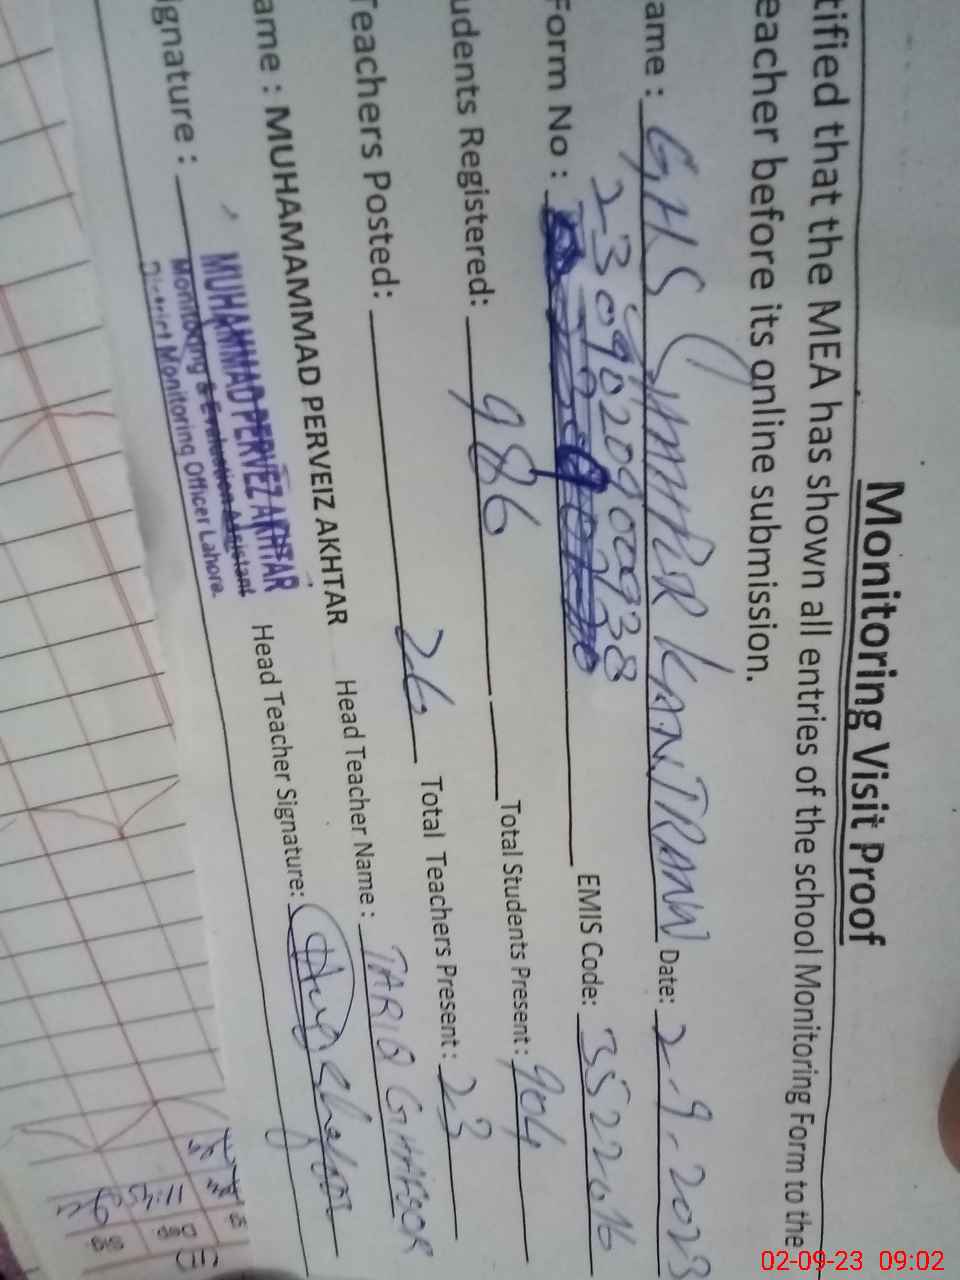 Monitoring Visit Proof
tified that the MEA has shown all entries of the school Monitoring Form to the
eacher before its online submission.
ame : GHS Date: 2-9-2023
2309020900938
Form No : EMIS Code: 35220016
udents Registered: 986 Total Students Present : 904
Teachers Posted: 26 Total Teachers Present : 23
ame : MUHAMMAD PERVEIZ AKHTAR Head Teacher Name : TARIQ GHAFOOR
ignature : Head Teacher Signature:
MUHAMMAD PERVEZ AKHTAR
Monitoring & Evaluation Assistant
District Monitoring Officer Lahore.
02-09-23 09:02